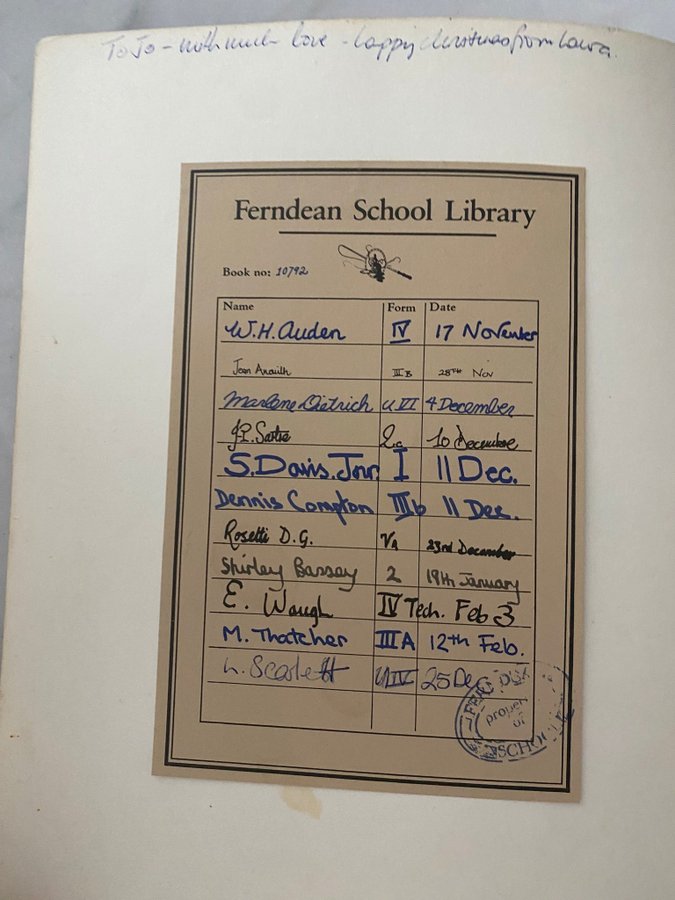 To Jo - with much love - happy Christmas from Laura.
Ferndean School Library
Book no: 10792
Name Form Date
W.H. Auden IV 17 November
Jean Anouilh III B 28TH Nov
Marlene Dietrich U VI 4 December
J.P. Sartre 2c 10 decembre
S. Davis. Jnr. I 11 Dec.
Dennis Compton IIIb 11 Dec.
Rosetti D.G. VA 23rd December
Shirley Bassey 2 19th January
E. Waugh IV Tech. Feb 3
M. Thatcher III A 12th Feb.
Scarlett UIV 25 Dec
property
of
SCHOOL